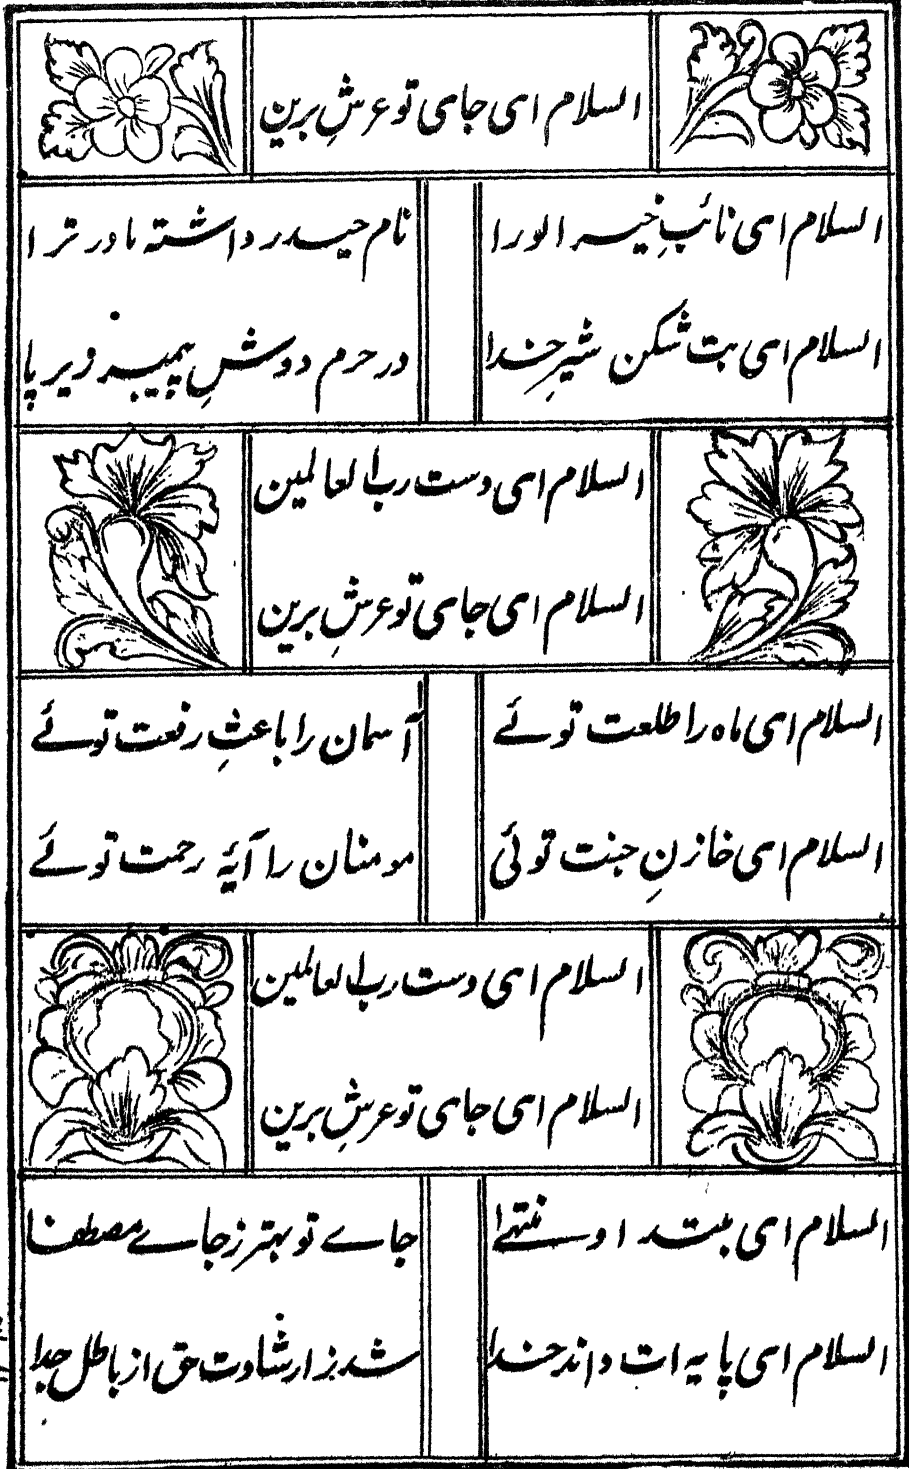 السلام ای جای تو عرشِ برین
السلام ای نائبِ خیر الورا
نام حیدر داشته مادر ترا
السلام ای بت شکن شیرِ خدا
در حرم دوشِ پیمبر زیر پا
السلام ای دست رب العالمین
السلام ای جای تو عرشِ برین
السلام ای ماه را طلعت توئے
آسمان را باعثِ رفعت توئے
السلام ای خازنِ جنت توئی
مومنان را آیۂ رحمت توئے
السلام ای دست رب العالمین
السلام ای جای تو عرشِ برین
السلام ای مبتدا و منتہے
جاے تو بہتر ز جاے مصطفا
السلام ای پایہ ات داند خدا
شد ز ارشادت حق از باطل جدا